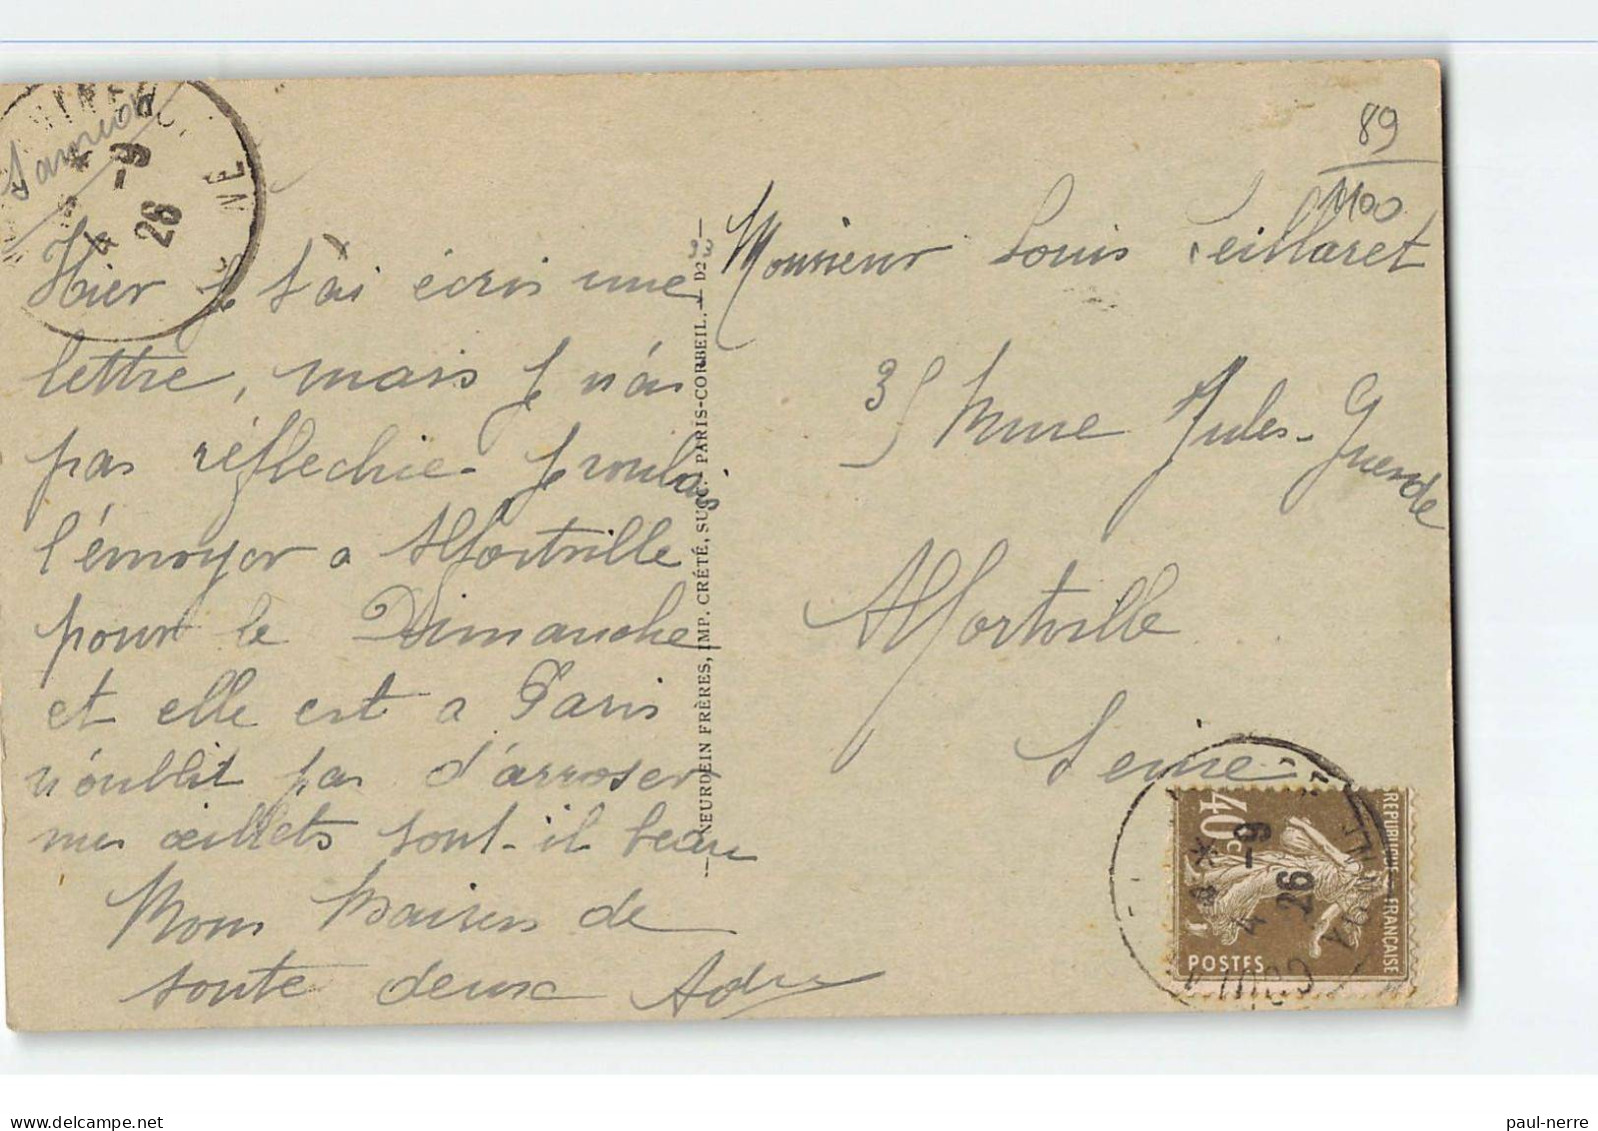 Samion
4 -9
26
89
1100
Hier je t'ai écris une
lettre, mais je n'ai
pas réflechie je voulais
l'émvoyer a Alfortville
pour le Dimanche
et elle est a Paris
n'oublit pas d'arroser
mes œillets sont-il beau
Mons baisers de
toute deux
NEURDEIN FRÈRES, IMP. CRÉTÉ, SUCC. — PARIS-CORBEIL. — D2
Monsieur Louis Teillaret
35 Mme Jules-Guesde
Alfortville
Seine
40c
REPUBLIQUE FRANÇAISE
POSTES
4 -9
26
paul-nerre